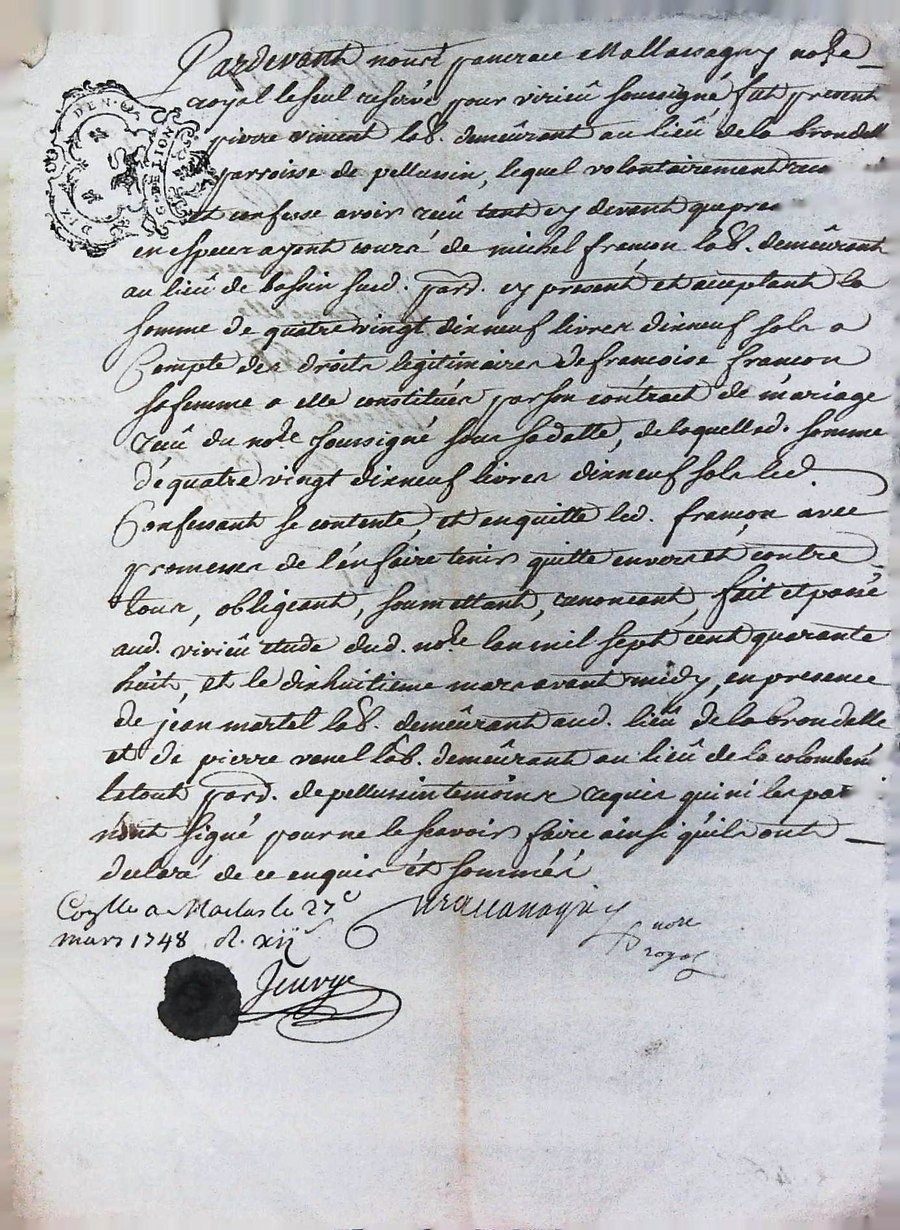 Pardevant nous pancrace Mallassagny nore
royal le seul reservé pour virieû soussigné fut present
pierre viment lab. demeûrant au lieû de la brondell
parroisse de pellussin, lequel volontairement
et confesse avoir reeû tant cy devant que pre
en espece ayant cours de michel françon lab. demeûrant
au lieû de bassin susd. parr. cy present et aceptant la
somme de quatre vingt dixneuf livres dixneuf sols a
Compte des droits legitimaires de francoise françon
sa femme a elle constitués par son contract de mariage
reeû du nore soussigné sous sa datte, de laquelle d. somme
de quatre vingt dixneuf livres dixneuf sols led.
Confessant se contente, et en quitte led. françon avec
promesses de l'en faire tenir quitte envers et contre
tous, obligeant, soumettant, renonceant, fait et passé
aud. virieû etude dud. nore l'an mil sept cent quarante
huit, et le dixhuitieme mars avant midy, en presence
de jean martel lab. demeûrant aud. lieû de la brondelle
et de pierre vanel lab. demeûrant au lieû de la colombe
le tout parr. de pellussin temoins requis qui ni les par
n'ont signé pour ne le scavoir faire ainsi qu'ils ont
declaré de ce enquis et sommés
Mallassagny
nore
royal
Conlle a Maclas le 27e
mars 1748 R. xii s
Jeuvye
DIX DEN.
G. DE LION